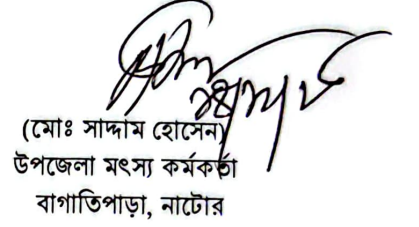 (মোঃ সাদ্দাম হোসেন)
উপজেলা মৎস্য কর্মকর্তা
বাগাতিপাড়া, নাটোর